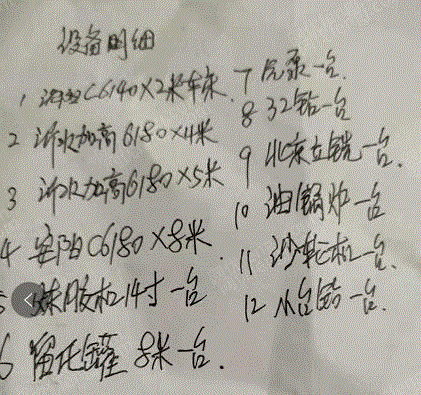 设备明细
1 沈阳C6140×2米车床.
2 沂水加高6180×4米
3 沂水加高6180×5米
4 安阳C6180×8米.
炼胶机14寸一台
6 留化罐 8米一台.
7 气泵一台.
8 32钻一台
9 北京立铣一台.
10 油锅炉一台
11 沙轮机一台.
12 从台钻一台.